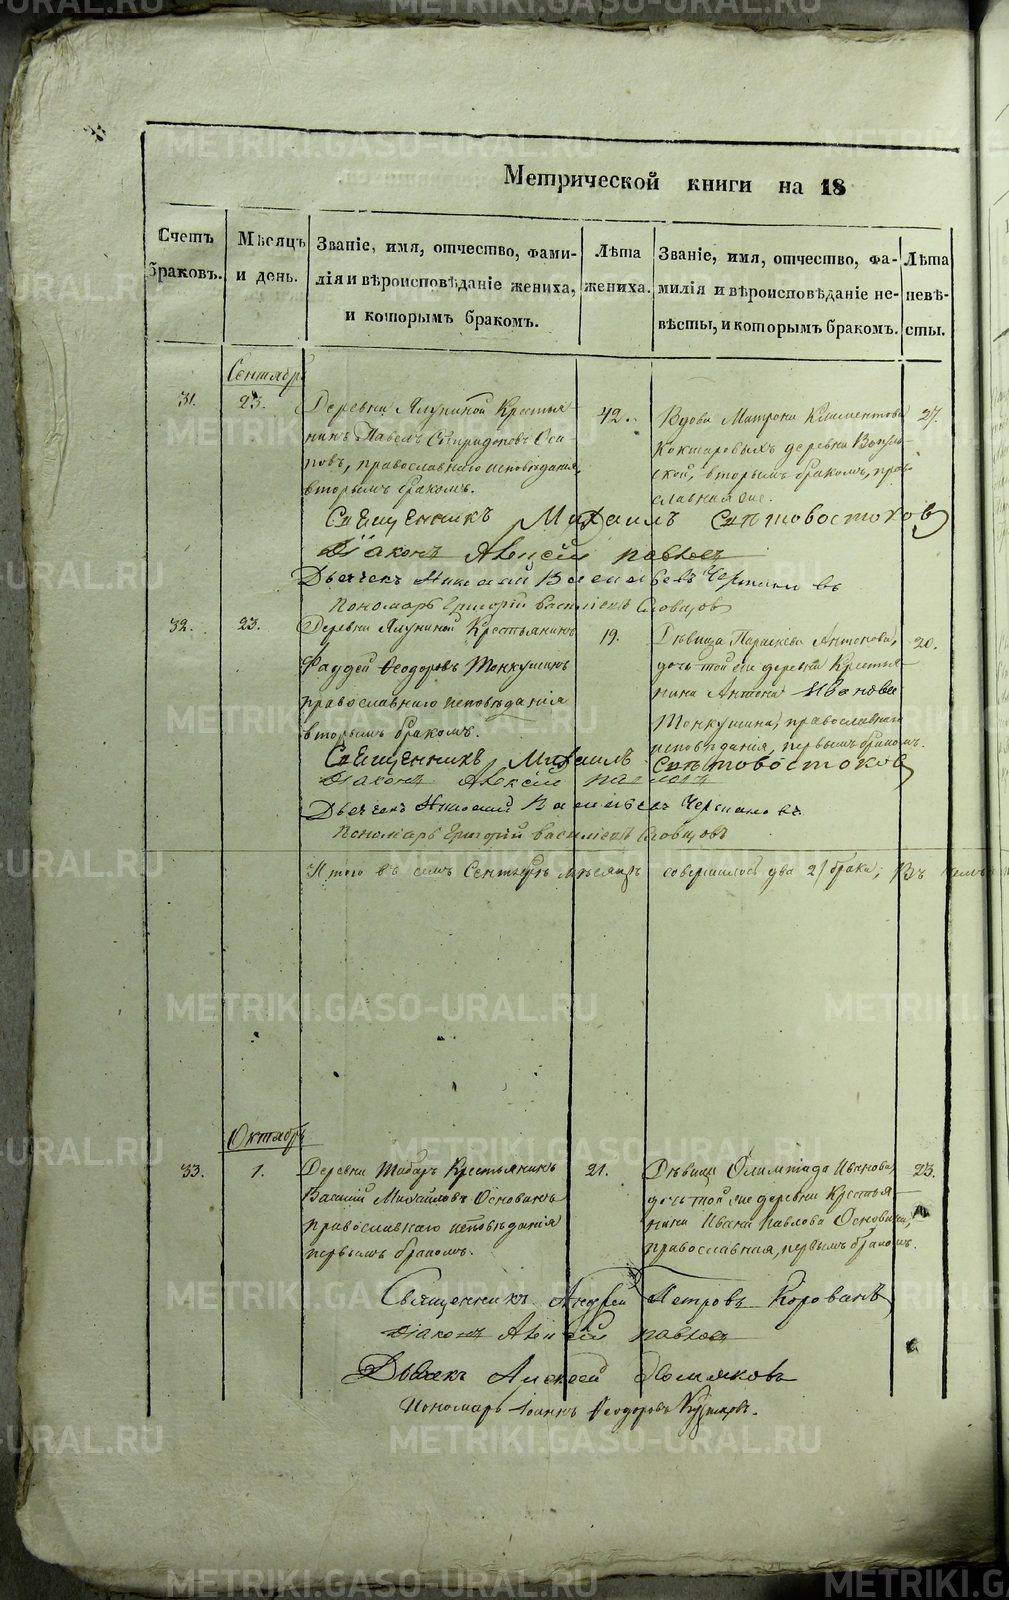 Метрической книги на 18
Счетъ браковъ.
Мѣсяцъ и день.
Званіе, имя, отчество, фами-
лія и вѣроисповѣданіе жениха,
и которымъ бракомъ.
Лѣта
жениха.
Званіе, имя, отчество, фа-
милія и вѣроисповѣданіе не-
вѣсты, и которымъ бракомъ.
Лѣта
невѣ-
сты.
Сентябрь
31.
23.
Деревни Ялуниной Крестья
нинъ Павелъ Спиридоновъ Оси
повъ, православнаго исповѣданія,
вторымъ бракомъ.
42.
Вдова Матрона Климентова
Кокшаровыхъ деревни
ской, вторымъ бракомъ, право
славная же.
27.
Священникъ Михаилъ Свѣтовостоковъ
Діаконъ Алексѣй
Дьячекъ Николай Васильевъ
Пономарь Григорій Васильевъ Словцовъ
32.
23.
Деревни Ялуниной Крестьянинъ
Фаддей Ѳеодоровъ Тонкушинъ
православнаго исповѣданія
вторымъ бракомъ.
19.
Дѣвица Параскева Антонова,
дочь той же деревни Крестья
нина Антона Иванова
Тонкушина, православнаго
исповѣданія, первымъ бракомъ.
20.
Священникъ Михаилъ Свѣтовостоковъ
Діаконъ Алексѣй
Дьячекъ Николай Васильевъ
Пономарь Григорій Васильевъ Словцовъ
Итого въ семъ Сентябрѣ мѣсяцѣ совершилось два 2/ брака; Въ
Октябрь
33.
1.
Деревни Табаръ Крестьянинъ
Василій Михайловъ Основинъ
православнаго исповѣданія
первымъ бракомъ.
21.
Дѣвица Олимпіада Иванова
дочь той же деревни Крестья
нина Ивана Павлова Основина,
православная, первымъ бракомъ.
23.
Священникъ Андрей Петровъ Коровинъ
Діаконъ Алексѣй
Дьячекъ Алексѣй Хомяковъ
Пономарь Іоаннъ Ѳеодоровъ
METRIKI.GASO-URAL.RU